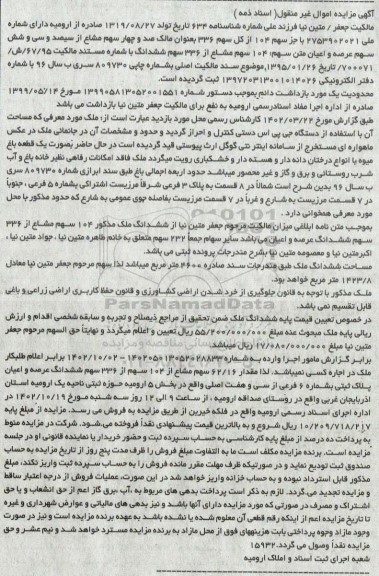 آگهی مزایده اموال غیر منقول( اسناد ذمه )
مالکیت جعفر / متین نیا فرزند علی شماره شناسنامه ۶۳۴ تاریخ تولد ۱۳۱۹/۰۸/۲۷ صادره از ارومیه دارای شماره
ملی ۲۷۵۳۹۰۲۰۲۱ با جز سهم ۱۰۴ از کل سهم ۳۳۶ بعنوان مالک صد و چهار سهم مشاع از سیصد و سی و شش
سهم عرصه و اعیان متن سهم: ۱۰۴ سهم مشاع از ۳۳۶ سهم ششدانگ با شماره مستند مالکیت ۶۷/۹۵/ش/
۷۰۰۰۷۱ تاریخ ۱۳۹۵/۰۱/۲۶,موضوع سند مالکیت اصلی بشماره چاپی ۸۰۹۷۳۰ سری ب سال ۹۶ با شماره
دفتر الکترونیکی ۱۳۹۷۲۰۳۱۳۰۰۱۰۱۴۰۲۶ ثبت گردیده است.
محدودیت یک مورد بازداشت دائم بموجب دستور شماره ۱۳۹۹۰۵۸۱۳۰۵۲۰۰۱۵۵۱ مورخ ۱۳۹۹/۰۵/۱۴
صادره از اداره اجرا مفاد اسنادرسمی ارومیه به نفع برای مالکیت جعفر متین نیا بازداشت می باشد
طبق گزارش مورخ ۱۴۰۲/۰۳/۲۲ کارشناس رسمی محل مورد بازدید عبارت است از: ملک مورد معرفی که مساحت
آن با استفاده از دستگاه جی پی اس دستی کنترل و احراز گردید و حدود و مشخصات آن در جانمائی ملک در عکس
ماهواره ای مستخرج از سامانه اینتر نتی گوگل ارث پیوستی قید گردیده است در حال حاضر بصورت یک قطعه باغ
میوه با انواع درختان دانه دار و هسته دار و خشکباری رویت میگردد ملک فاقد امکانات رفاهی نظیر خانه باغ و آب
شرب روستائی و برق و گاز و غیر محصور میباشد حدود اربعه اجمالی باغ طبق سند ابرازی شماره ۸۰۹۷۳۰ سری
ب سال ۹۶ بدین شرح است شمالاً در ۸ قسمت به پلاک ۳ فرعی شرقاً مرزیست اشتراکی بشماره ۵ فرعی ، جنوباً
در ۷ قسمت مرزیست به شارع و غرباً در ۷ قسمت مرزیست بفاصله جوی عمومی به شارع که حدود مذکور با محل
مورد معرفی همخوانی دارد .
بموجب متن نامه ابلاغی میزان مالکیت مرحوم جعفر متین نیا از ششدانگ ملک مذکور ۱۰۴ سهم مشاع از ۳۳۶
سهم ششدانگ عرصه و اعیان می باشد سایر سهام جمعاً ۲۳۲ سهم متعلق به خانم طاهره متین نیا ، جواد متین نیا ،
اکبر متین نیا و معصومه متین نیا بشرح مندرجات پرونده ثبتی می باشد.
مساحت ششدانگ ملک طبق مندرجات سند صادره ۴۶۰۰ متر مربع میباشد لذا سهم مرحوم جعفر متین نیا معادل
۱۴۲۳/۸ متر مربع خواهد بود.
ملک مذکور با توجه به قانون جلوگیری از خرد شدن اراضی کشاورزی و قانون حفظ کاربری اراضی زراعی و باغی
قابل تقسیم نمی باشد.
در خصوص تعیین قیمت پایه ششدانگ ملک ضمن تحقیق از مراجع ذیصلاح و تجربه و سابقه شخصی اقدام و ارزش
ریالی پایه ملک مبحوث عنه مبلغ ۵۵/۲۰۰/۰۰۰/۰۰۰ ریال تعیین و اعلام میگردد و نهایتا حق السهم مرحوم جعفر
متین نیا مبلغ ۱۷/۰۸۰/۰۰۰/۰۰۰ ریال میباشد
برابر گزارش مامور اجرا وارده به شماره ۱۴۰۲۰۵۰۱۳۰۵۲۰۲۸۸۳۳ – ۱۴۰۲/۱۰/۰۲ برابر اعلام طلبکار
ملک در اجاره کسی نمیباشد. لذا مقدار ۶۲/۱۶ سهم مشاع از ۱۰۴ سهم از ۳۳۶ سهم ششدانگ عرصه و اعیان
پلاک ثبتی بشماره ۶ فرعی از سی و هفت اصلی واقع در بخش ۵ ارومیه حوزه ثبتی ناحیه یک ارومیه استان
آذربایجان غربی واقع در روستای صداقه ارومیه ، از ساعت ۹ الی ۱۲ روز سه شنبه مورخ ۱۴۰۲/۱۰/۱۹ در
اداره اجرای اسناد رسمی ارومیه واقع در فلکه خیرین از طریق مزایده به فروش می رسد. مزایده از مبلغ پایه
۱۰/۲۰۹/۷۱۸/۲۱۷ ریال شروع و به بالاترین قیمت پیشنهادی نقداً فروخته می‌شود. شرکت در مزایده منوط
به پرداخت ده درصد از مبلغ پایه کارشناسی به حساب سپرده ثبت و حضور خریدار یا نماینده قانونی او در جلسه
مزایده است. برنده مزایده مکلف است ما به التفاوت مبلغ فروش را ظرف مدت پنج روز از تاریخ مزایده به حساب
صندوق ثبت تودیع نماید و در صورتیکه ظرف مهلت مقرر مانده فروش را به حساب سپرده ثبت واریز نکند، مبلغ
مذکور قابل استرداد نبوده و به حساب خزانه واریز خواهد شد در این صورت، عملیات فروش از درجه اعتبار ساقط
و مزایده تجدید می گردد. لازم به ذکر است پرداخت بدهی های مربوط به ،آب ،برق گاز اعم از حق انشعاب و یا حق
اشتراک و مصرف در صورتی که مورد مزایده دارای آنها باشد و نیز بدهی های مالیاتی و عوارض شهرداری و غیره
تا تاریخ مزایده اعم از اینکه رقم قطعی آن معلوم شده یا نشده باشد به عهده برنده مزایده است و نیز در صورت
وجود مازاد وجوه پرداختی بابت هزینههای فوق از محل مازاد به برنده مزایده مسترد خواهد شد و نیم عشر و حق
مزایده نقداً وصول می گردد.۱۵۹۳۲
شعبه اجرای ثبت اسناد و املاک ارومیه